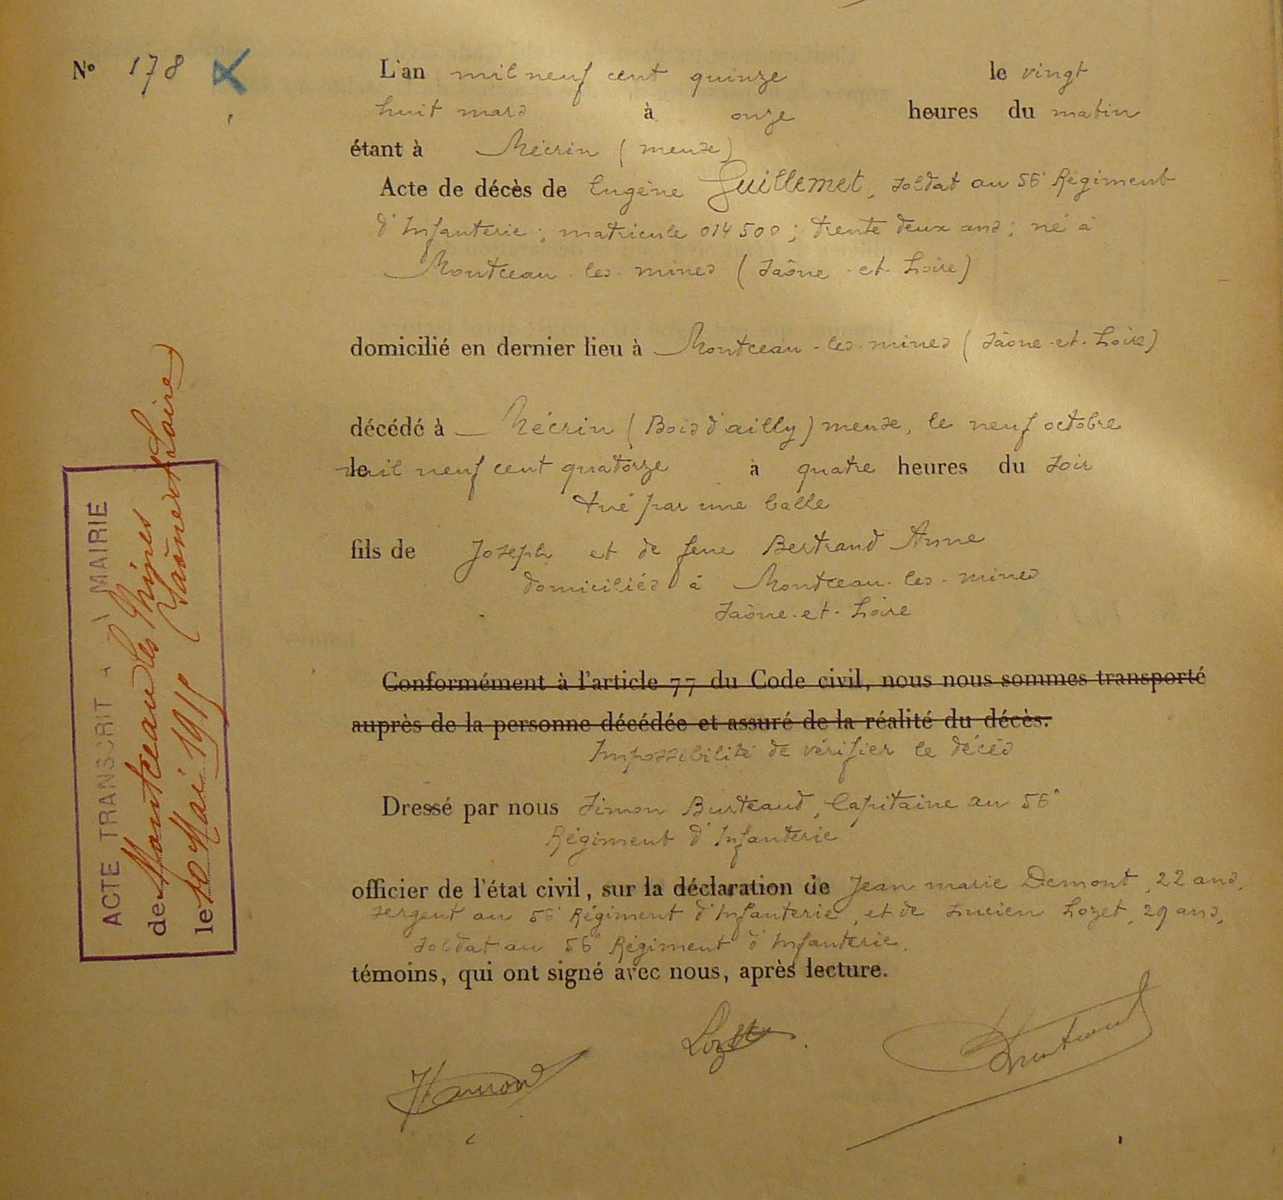 N° 178
L'an mil neuf cent quinze le vingt
huit mars à onze heures du matin
étant à Mécrin (meuse)
Acte de décès de Eugène Guillemet, soldat au 56e Régiment
d'Infanterie; matricule 014500; trente deux ans; né à
Montceau-les-mines (Saône-et-Loire)
domicilié en dernier lieu à Montceau-les-mines (Saône-et-Loire)
décédé à Mécrin (Bois d'ailly) meuse, le neuf octobre
le mil neuf cent quatorze à quatre heures du soir
tué par une balle
fils de Joseph et de feue Bertrand Anne
domiciliés à Montceau-les-mines
Saône-et-Loire
Conformément à l'article 77 du Code civil, nous nous sommes transporté
auprès de la personne décédée et assuré de la réalité du décès.
Impossibilité de vérifier le décès
Dressé par nous Simon Burteaud, Capitaine au 56e
Régiment d'Infanterie
officier de l'état civil, sur la déclaration de Jean marie Demont, 22 ans,
sergent au 56e Régiment d'Infanterie, et de Lucien Lozet, 29 ans,
soldat au 56e Régiment d'Infanterie,
témoins, qui ont signé avec nous, après lecture.
Lozet
ACTE TRANSCRIT A MAIRIE
de Montceau les Mines
le 10 Mai 1915 (Saône et Loire)